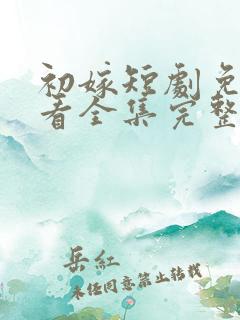 初嫁短劇免
看全集完整
岳紅
未经同意禁止转载